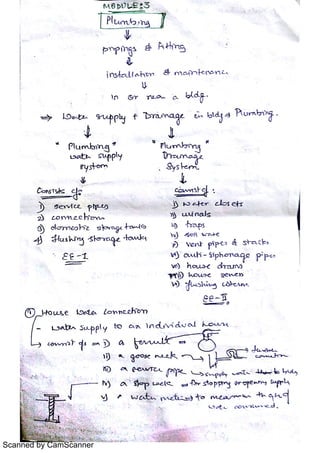 MODULE:3
Plumbing
pipings & fitting
installation & maintenance
in or near a bldg.
⇒ Water supply & Drainage in bldg → Plumbing.
"Plumbing" water supply system
"Plumbing" Drainage System
Consists of:
1) service pipes
2) connections
3) domestic storage tanks
4) flushing storage tanks
EE-1
consist of:
i) water closets
ii) urinals
iii) traps
iv) soil waste
v) vent pipes & stacks
vi) anti-siphonage pipes
vii) house drains
viii) house sewers
ix) flushing cistern
EE-II
① House Water Connection
- Water supply to an individual house
→ consist of an i) a ferrule
ii) a goose neck
iii) a service pipe → supply water to bldg
iv) a stop cock → for stopping or opening supply
v) a water meter → to measure the qty of
water consumed.
Scanned by CamScanner